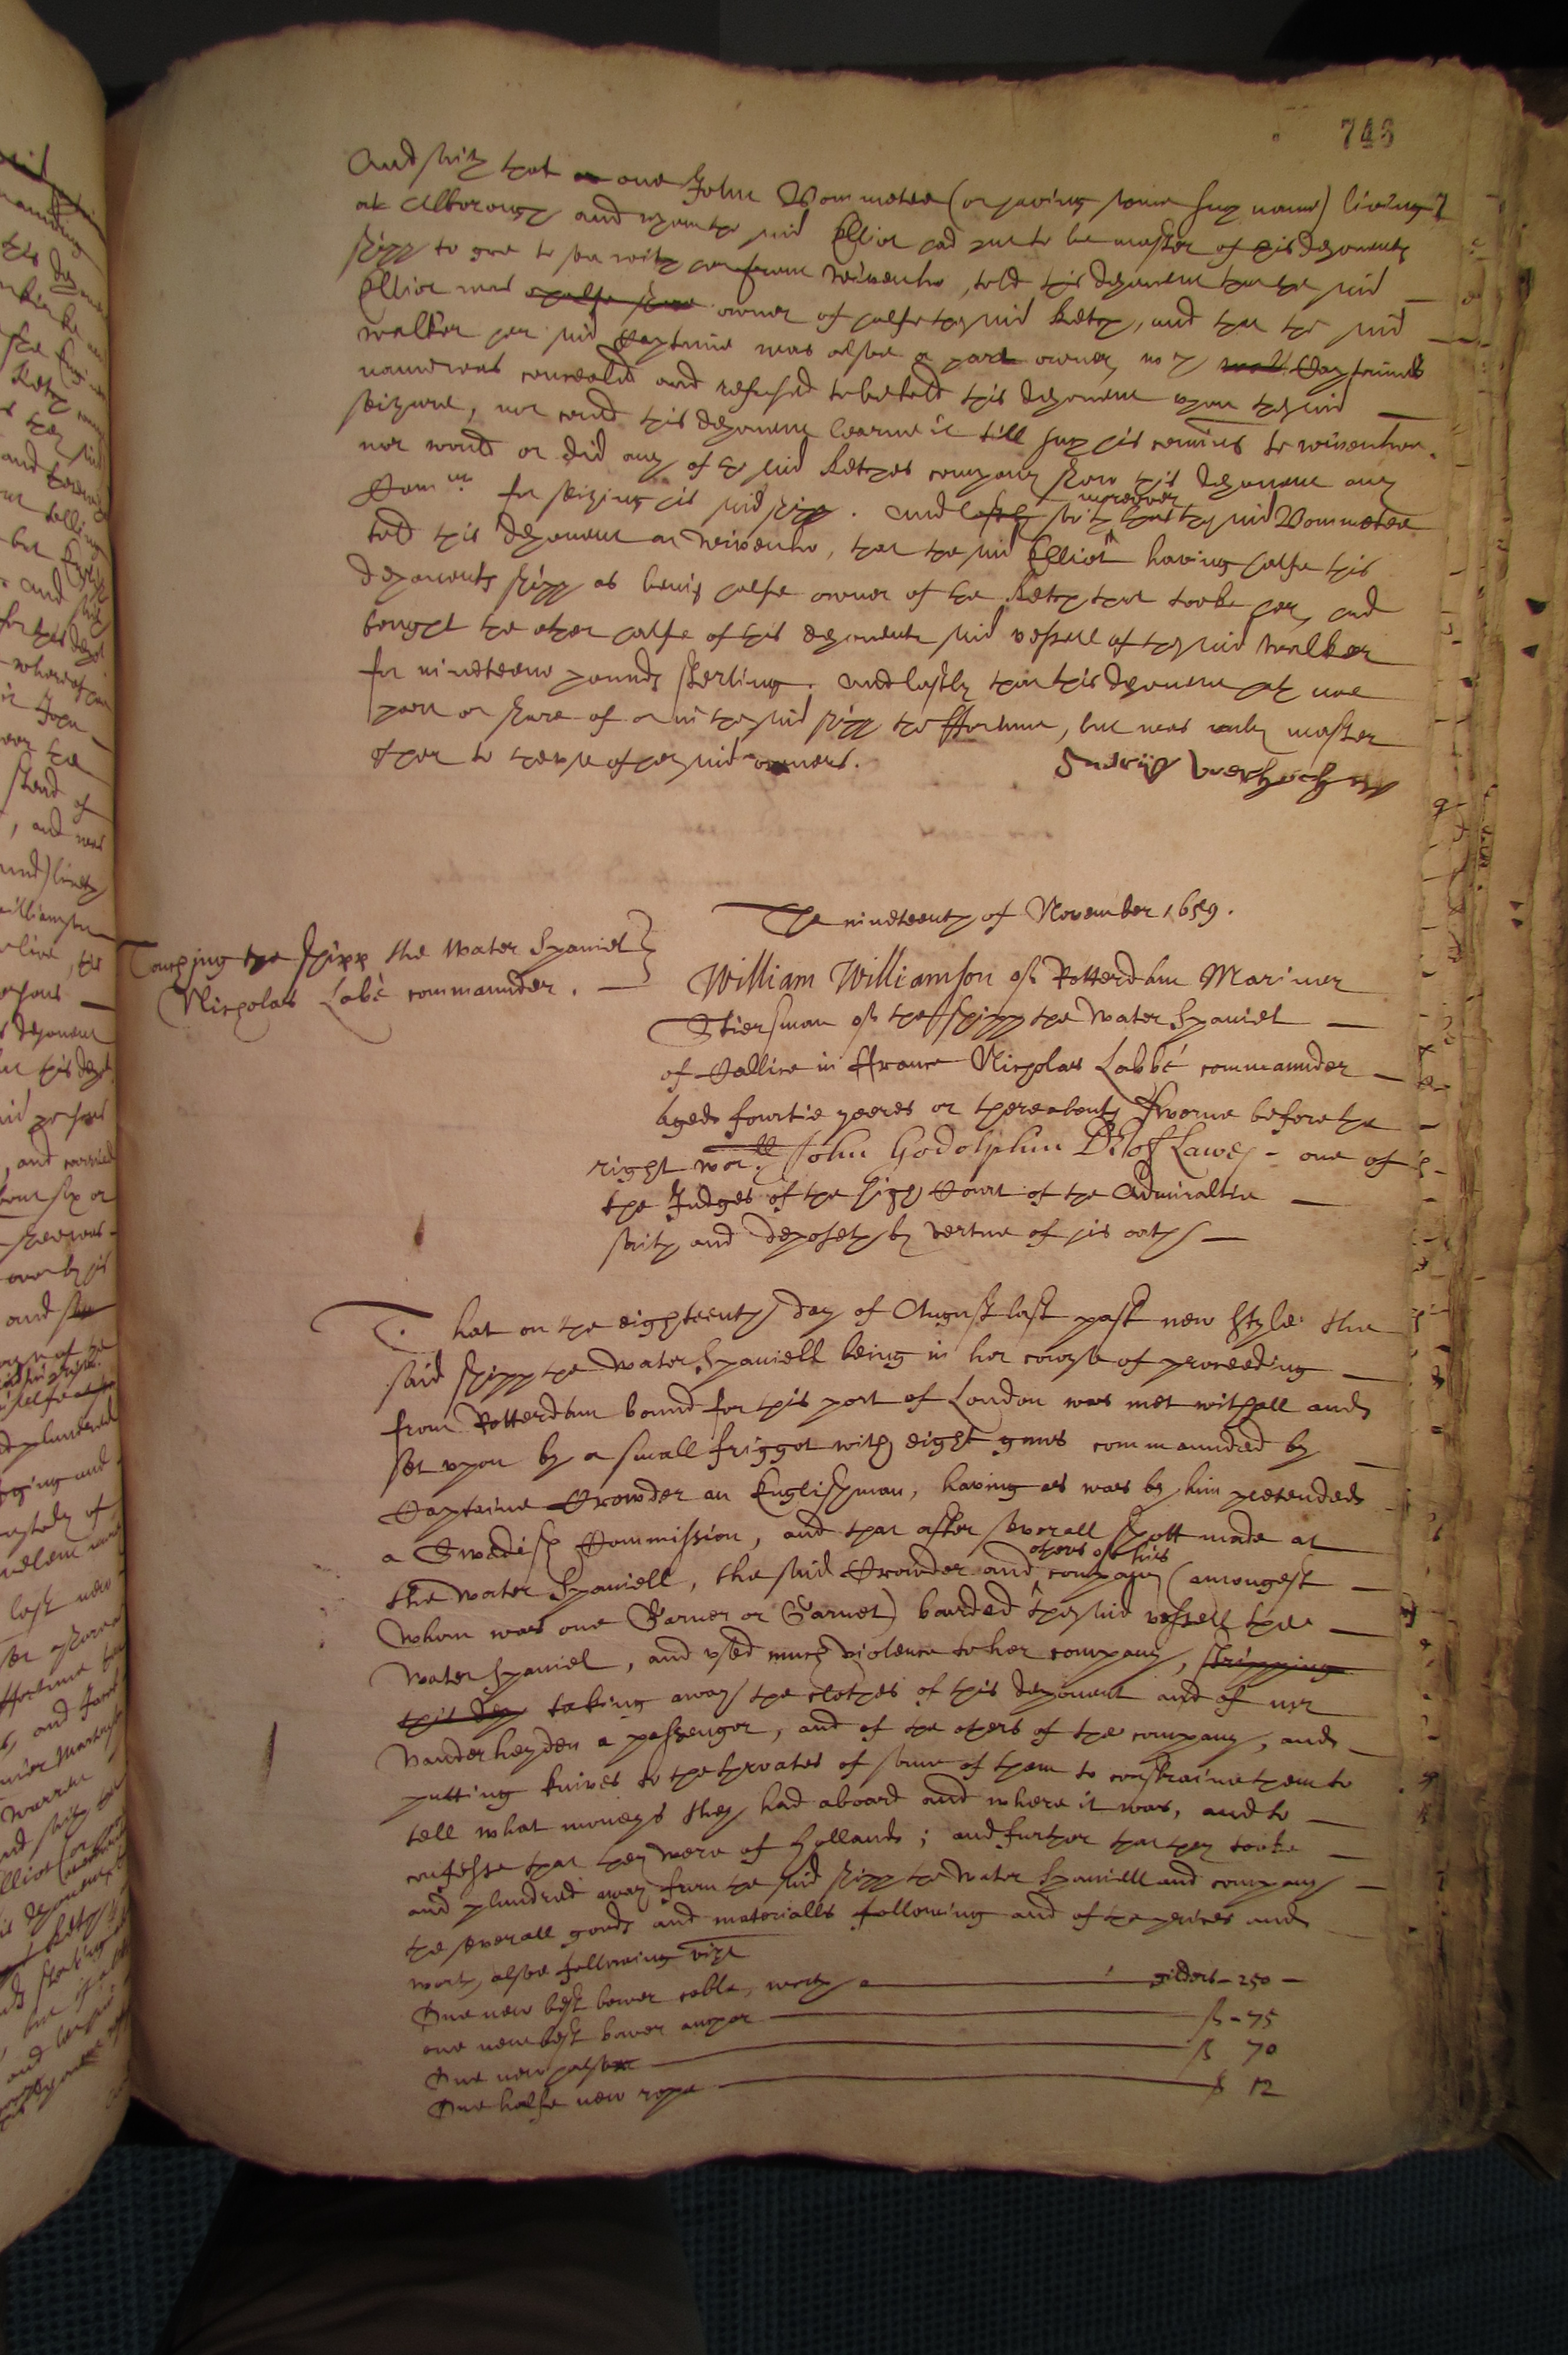 743
And saith that one John Bommetee (or having some such name) living
at Alborough and whom the said Elliot had put to be master of his deponents
shipp to goe to sea with her from Wivenho, told this deponent that the said
Elliot was owner of halfe the said Ketch, and that the said
Walker her said Captaine was alsoe a part owner, w^ch Captaines
name was concealed and refused to be told this deponent upon the said
seizure, nor could this deponent learne it till such his coming to Wivenhoe.
nor would or did any of the said Ketches company show this deponent any
Com^on for seizing his said shipp. And lastly saith moreover that the said Bommetee
told this deponent at Wivenho, that the said Elliot having halfe this
deponents shipp as being halfe owner of the Ketch that tooke her, had
bought the other halfe of this deponents said vessell of the said Walker
for nineteene pounds sterling. And lastly that this deponent hath noe
part or share of or in the said shipp the ffortune, but was only master
of her to the use of her said owners.
The nineteenth of November 1659.
Touching the shipp the Water Spaniel
Nicholas Labbé commaunder.
William Williamson of Rotterdam Mariner
Stiersman of the shipp the Water Spaniel
of Callice in ffrance Nicholas Labbé commaunder
aged fourtie yeeres or thereabouts sworne before the
right wor^ll John Godolphin D^r of Lawes one of
the Judges of the high Court of the Admiraltie
saith and deposeth by vertue of his oath
That on the eighteenth day of August last past new style the
said shipp the Water Spaniell being in her course of proceeding
from Rotterdam bound for this port of London was met withall and
set upon by a small friggot with eight gunns commaunded by
Captaine Crowder an Englishman, having as was by him pretended
a Swedish Commission, and that after severall shott made at
the Water Spaniell, the said Crowder and others of his company (amongest
whom was one Garner or Garnet) boarded the said vessell the
Water Spaniel, and used much violence to her company, stripping
this dep taking away the clothes of this deponent and of mr
Vanderheyden a passenger, and of the others of the company, and
putting knives to the throates of some of them to constraine them to
tell what moneys they had aboard and where it was, and to
confesse that they were of Holland; and further that they tooke
and plundred away from the said shipp the Water Spaniell and company
the severall goods and materialls following and of the prices and
worth alsoe following viz^t
One new best bower cable, worth gilders - 250 -
one new best bower anchor - 75
One new halser 70
One halfe new rope 12